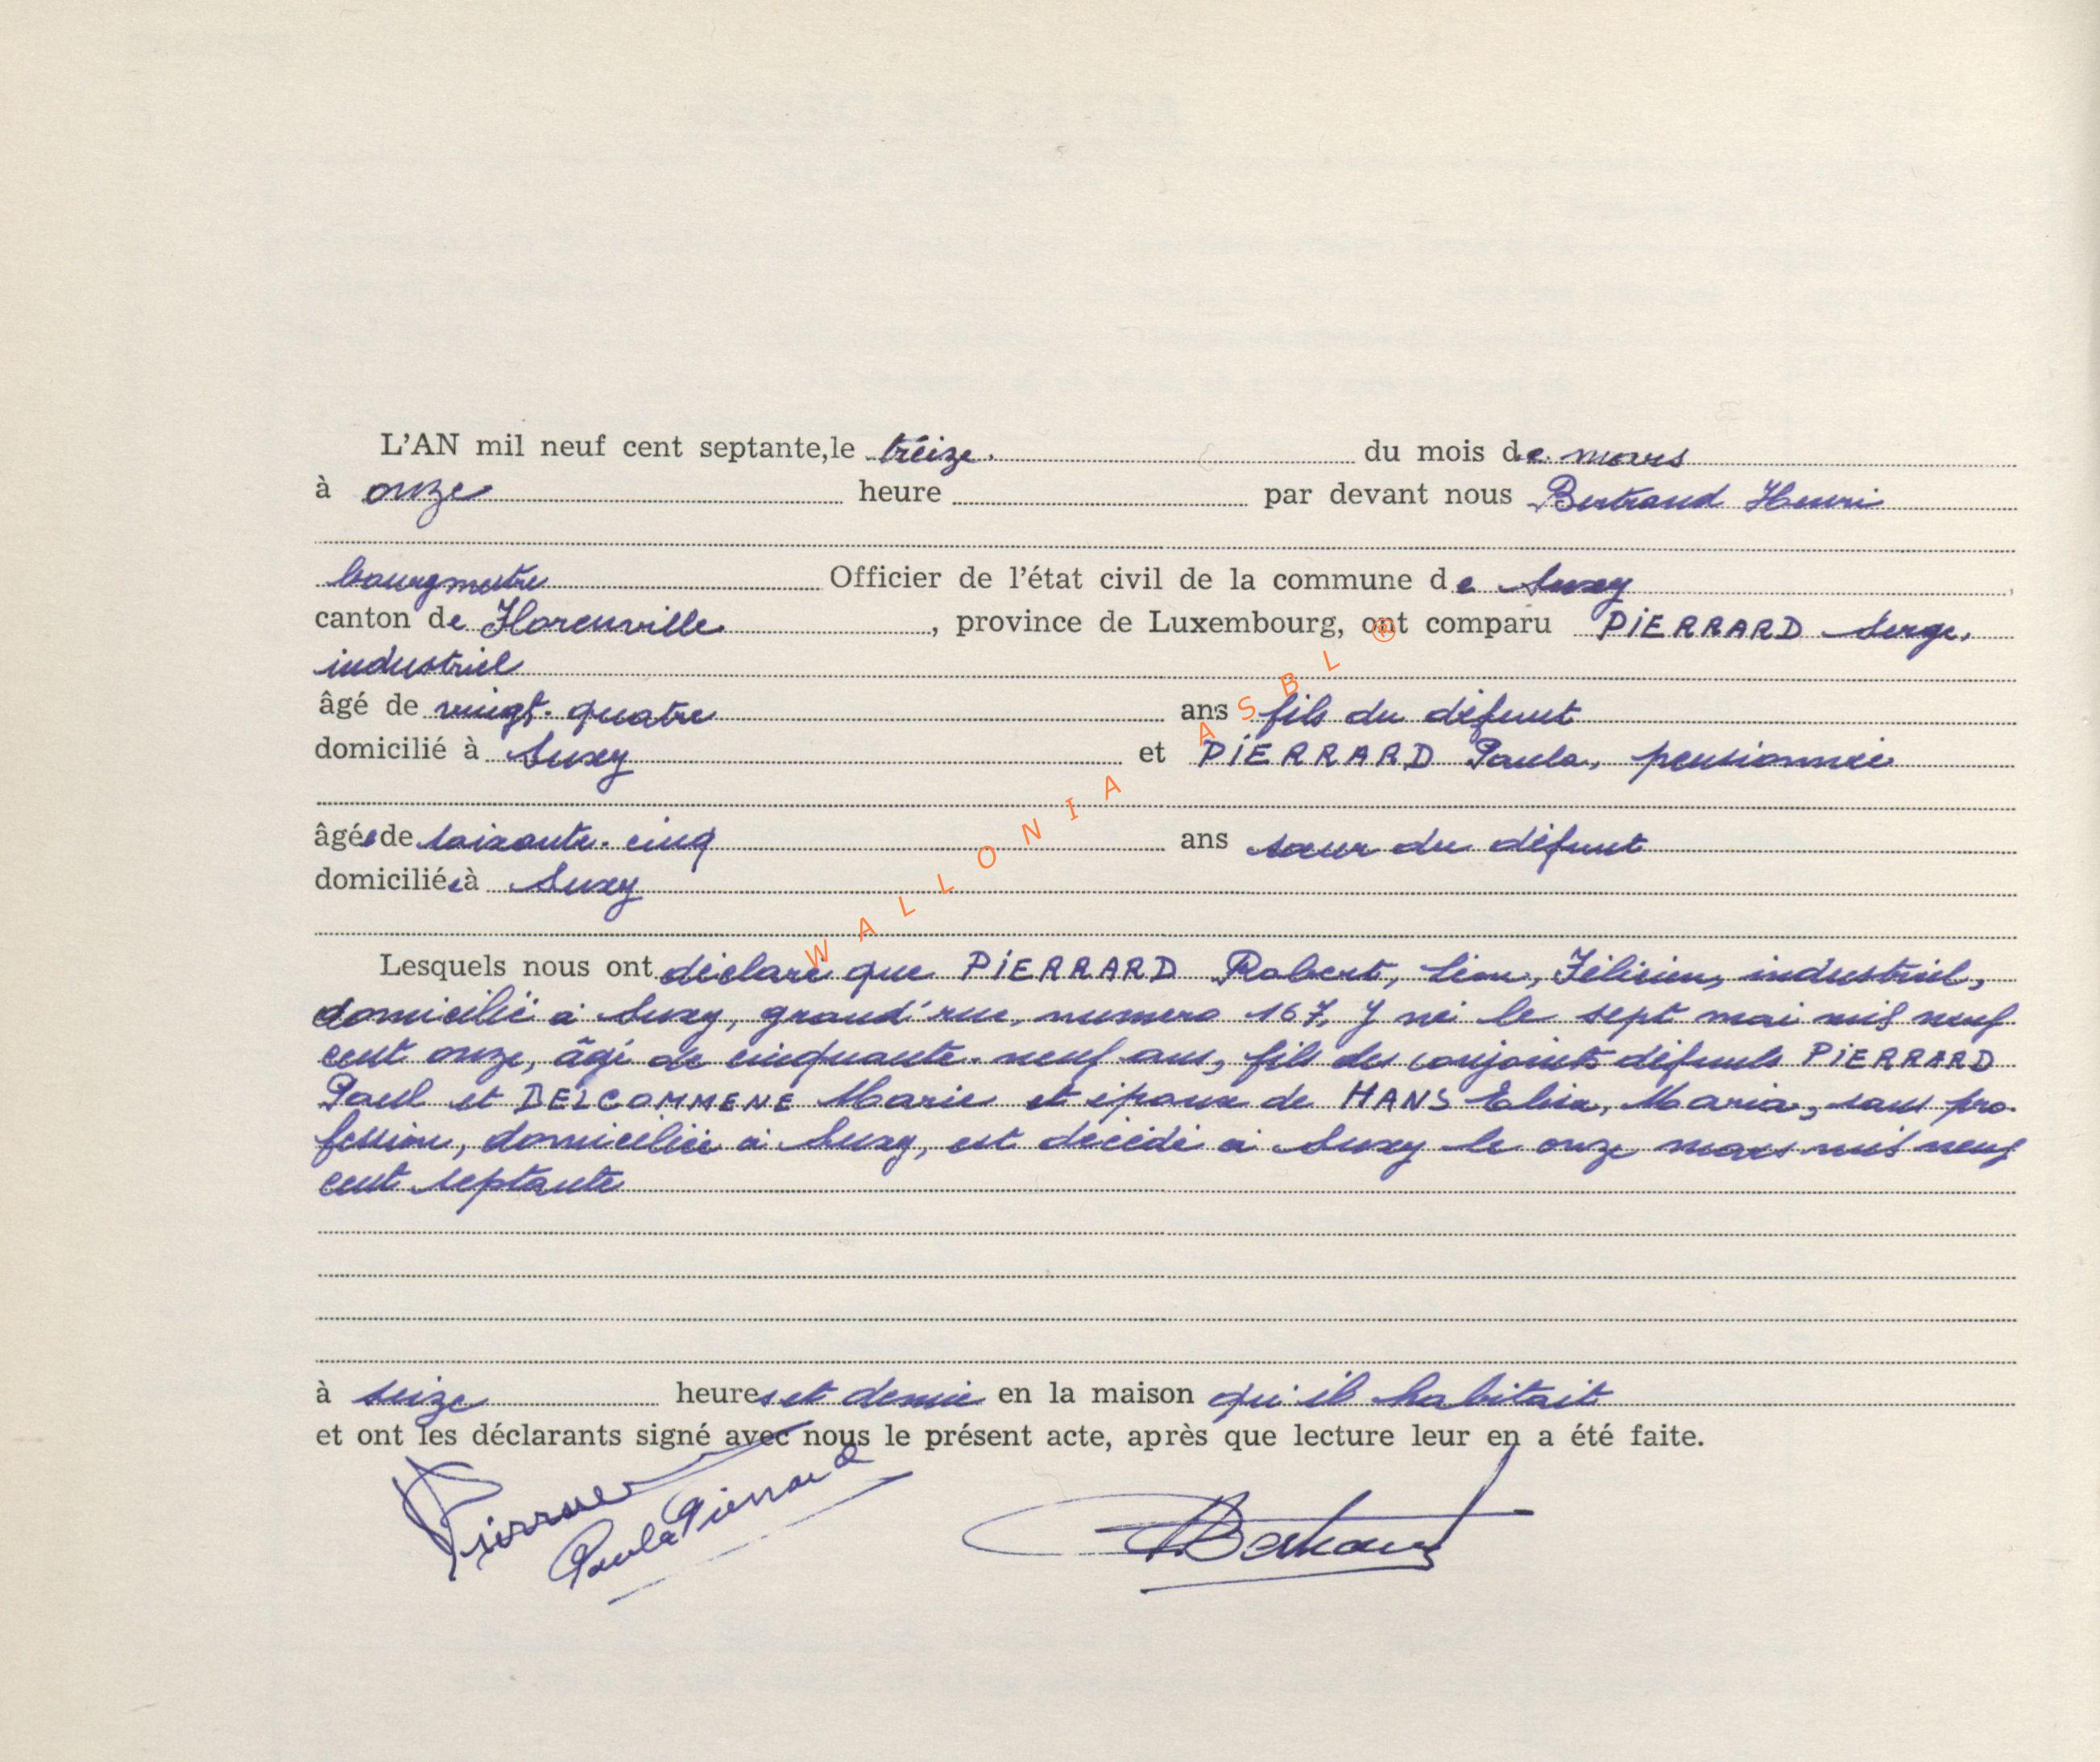 L'AN mil neuf cent septante, le treize. du mois de mars
à onze heure par devant nous Bertrand Henri
bourgmestre Officier de l'état civil de la commune de Suxy
canton de Florenville, province de Luxembourg, ont comparu PIERRARD Serge,
industriel
âgé de vingt-quatre ans fils du défunt
domicilié à Suxy et PIERRARD Paula, pensionnée
âgée de soixante-cinq ans sœur du défunt
domiciliée à Suxy
Lesquels nous ont déclaré que PIERRARD Robert, Léon, Félicien, industriel,
domicilié à Suxy, grand'rue, numéro 167, y né le sept mai mil neuf
cent onze, âgé de cinquante-neuf ans, fils des conjoints défunts PIERRARD
Paul et DELCOMMENE Marie et époux de HANS Elisa, Maria, sans pro-
fession, domiciliée à Suxy, est décédé à Suxy le onze mars mil neuf
cent septante
à seize heures et demie en la maison qu'il habitait
et ont les déclarants signé avec nous le présent acte, après que lecture leur en a été faite.
Pierrard
Paula Pierrard
HBertrand
WALLONIA ASBL ®